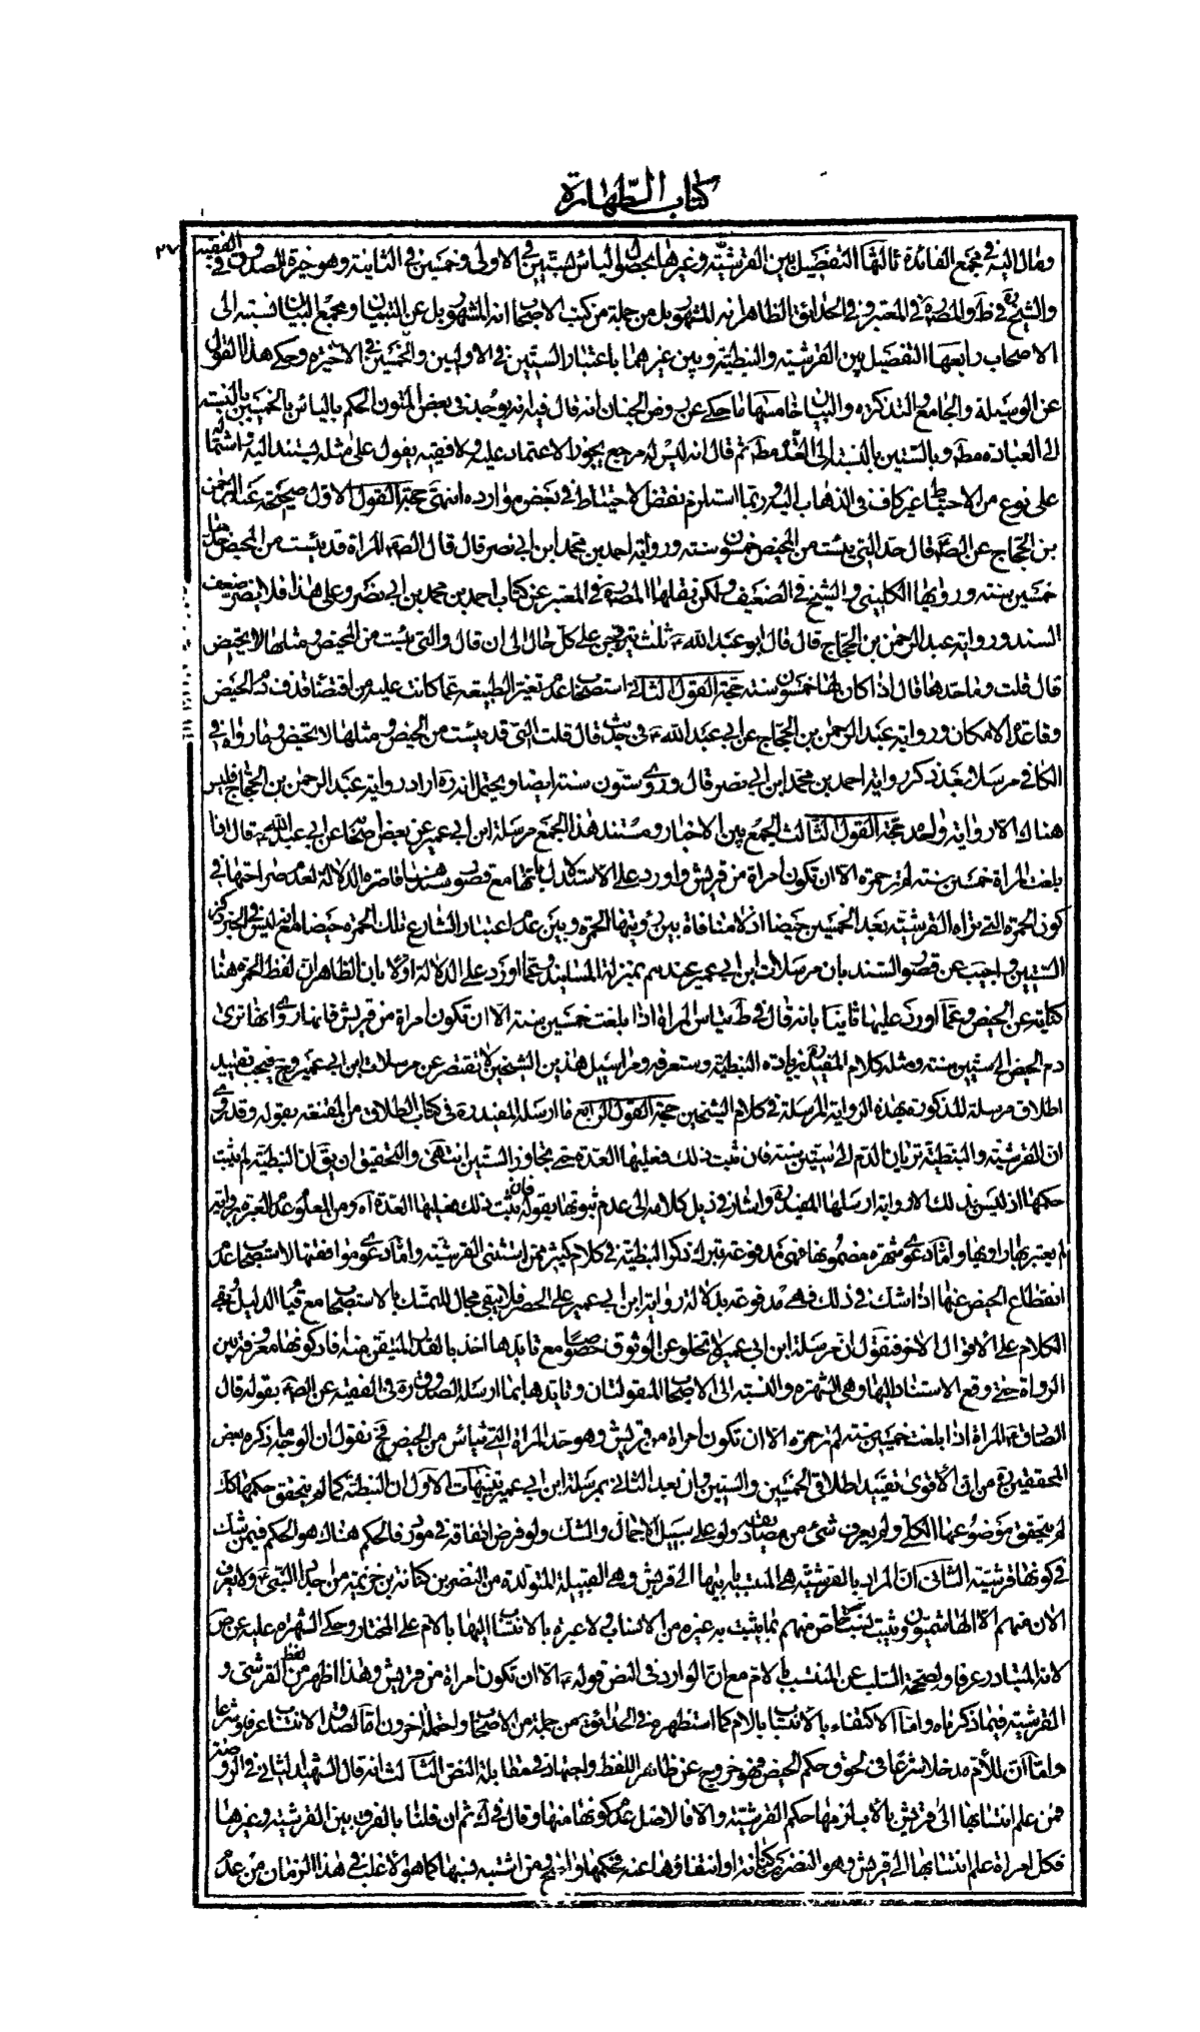 كتاب الطهارة
٢٧
ومال اليه في مجمع الفائدة ثالثها التفصيل بين القرشيّة وغيرها بحصول الياس بستين في الاولى وخمسين في الثانية وهو خيرة الصدوق في الفقيه
والشيخ ره في ط والمصره في المعتبر وفي الحدائق الظاهر انه المشهور بل من جملة من كتب الاصحاب انه المشهور بل عن التبيان ومجمع البيان نسبته الى
الاصحاب رابعها التفصيل بين القرشيّة والنبطيّة وبين غيرهما باعتبار الستين في الاوليين والخمسين في الاخيرة وحكى هذا القول
عن الوسيلة والجامع والتذكرة والبيان خامسها ما حكى عن روض الجنان انه قال فيه انه يوجد في بعض المتون الحكم بالياس بالخمسين بالنسبة
الى العبادة مط وبالستين بالنسبة الى العدّة مط ثم قال انه ليس له مرجع يجوز الاعتماد عليه ولا فقيه يقول على مثله يستند اليه واشتماله
على نوع من الاحتياط غير كاف في الذهاب اليه وربما استلزم نقض الاحتياط في بعض موارده انتهى حجة القول الاول صحيحة عبد الرحمن
بن الحجاج عن الص‍ قال حد التي يئست من المحيض خمسون سنة ورواية احمد بن محمد ابن ابي نصر قال قال الص‍ المراة قد يئست من المحيض حدها
خمسين سنة ورواها الكليني والشيخ في الضعيف ولكن نقلها المصره في المعتبر عن كتاب احمد بن محمد بن ابي نصر وعلى هذا فلا يضر ضعف
السند ورواية عبد الرحمن بن الحجاج قال قال ابو عبد الله ع ثلث يتزوجن على كل حال الى ان قال والتي يئست من المحيض ومثلها لا يحيض
قال قلت وما حدها قال اذا كان لها خمسون سنة حجة القول الثاني استصحاب عدم تغير الطبيعة عما كانت عليه من اقتضاء قذف دم الحيض
وقاعدة الامكان ورواية عبد الرحمن بن الحجاج عن ابي عبد الله ع في حديث قال قلت التي قد يئست من المحيض ومثلها لا تحيض وما رواه في
الكافي مرسلا بعد ذكر رواية احمد بن محمد ابن ابي نصر قال وروى ستون سنة ايضا ويحتمل انه ره اراد رواية عبد الرحمن بن الحجاج فليس
هناك الا رواية واحدة حجة القول الثالث الجمع بين الاخبار ومستند هذا الجمع مرسلة ابن ابي عمير عن بعض اصحابنا عن ابي عبد الله ع قال اذا
بلغت المراة خمسين سنة لم تر حمرة الا ان تكون امراة من قريش واورد على الاستدلال بها مع قصور سندها قاصرة الدلالة لعدم صراحتها في
كون الحمرة التي تراه القرشية بعد الخمسين حيضا اذ لا منافاة بين رؤيتها الحمرة وبين عدم اعتبار الشارع تلك الحمرة حيضا مع انه ليس في الخبر ذكر
الستين واجيب عن قصور السند بان مرسلات ابن ابي عمير عندهم بمنزلة المسانيد وعما اورد على الدلالة اولا بان الظاهر ان لفظ الحمرة هنا
كناية عن الحيض وعما اورد عليها ثانيا بانه قال في ط تياس المراة اذا بلغت خمسين سنة الا ان تكون امراة من قريش فانه روى انها ترى
دم الحيض الى ستين سنة ومثله كلام المفيد ره بزيادة النبطية وستعرفه ومراسيل هذين الشيخين لا تقتصر عن مرسلات ابن ابي عمير وح فيجب تقييد
اطلاق مرسلة المذكورة بهذه الرواية المرسلة في كلام الشيخين حجة القول الرابع ما ارسله المفيد ره في كتاب الطلاق من المقنعة بقوله وقد روى
ان القرشية والنبطية تريان الدم الى ستين سنة فان ثبت ذلك فعليها العدة حتى تجاوز الستين انتهى والتحقيق ان يق ان النبطية لم يثبت
حكمها اذ ليس في ذلك الا رواية ارسلها المفيد ره واشار في ذيل كلامه الى عدم ثبوتها بقوله فان ثبت ذلك فعليها العدة اه ومن المعلوم عدم العبرة برواية
لم يعتبر بها راويها واما دعوى شهرة مضمونها فهي مدفوعة بترك ذكر النبطية في كلام كثير ممن استثنى القرشية واما دعوى موافقتها لاستصحاب عدم
انقطاع الحيض عنها اذا شك في ذلك فهي مدفوعة بدلالة رواية ابن ابي عمير على الحصر فلا يبقى مجال للتمسك بالاستصحاب مع قيام الدليل وبقى
الكلام على الاقوال الاخر فنقول ان مرسلة ابن ابي عمير لا تخلو عن الوثوق خصوصا مع تايدها اخذ بالقدر المتيقن منه افاد كونها معروفة بين
الرواة حتى وقع الاستناد اليها وهي الشهرة والنسبة الى الاصحاب المنقولتان وتايدها بما ارسله الصدوق ره في الفقيه عن الص‍ بقوله قال
الصادق ع المراة اذا بلغت خمسين سنة لم تر حمرة الا ان تكون امراة من قريش وهو حد المراة التي تياس من الحيض فح نقول ان الوجه ما ذكره بعض
المحققين ره من ان الاقوى تقييد اطلاق الخمسين والستين وبان نعد الثاني بمرسلة ابن ابي عمير تنبيهات الاول ان النبطية كما لم يتحقق حكمها كك
لم يتحقق موضوعها الكلي ولم يعرف شئ من مصاديقه ولو على سبيل الاجمال والشك ولو فرض اتفاقه في مورد فالحكم هناك هو الحكم فيمن شك
في كونها قرشية الثاني ان المراد بالقرشية هي المنتسبة بابيها الى قريش وهي القبيلة المتولدة من النضر بن كنانة بن خزيمة من اجداد النبي ص ولا يعرف
الان منهم الا الهاشميون ويثبت نسب كل شخص منهم بما يثبت به غيره من الانساب ولا عبرة بالانتساب اليها بالام على المختار وحكى الشهرة عليه عن ض
لانه المتبادر عرفا ولصحة السلب عن المنتسب بالام مع ان الوارد في النص قوله ع الا ان تكون امراة من قريش وهذا اظهر من لفظ القرشي و
القرشية فيما ذكرناه واما الاكتفاء بالانتساب بالام كما استظهره في الحدائق من جملة من الاصحاب واحتمله اخرون اما لصدق الانتساب عرفا وشرعا
واما ان للام مدخلا شرعا في لحوق حكم الحيض فهو خروج عن ظاهر اللفظ واجتهاد في مقابلة النص الثالث انه قال الشهيد الثاني في الروضة
فمن علم انتسابها الى قريش بالاب لزمها حكم القرشية والا فالاصل عدم كونها منها وقال في ك ثم ان قلنا بالفرق بين القرشية وغيرها
فكل امراة علم انتسابها الى قريش وهو النضر بن كنانة او انتفاؤها عنه فحكمها واضح ومن اشتبه نسبها كما هو الاغلب في هذا الزمان من عدم